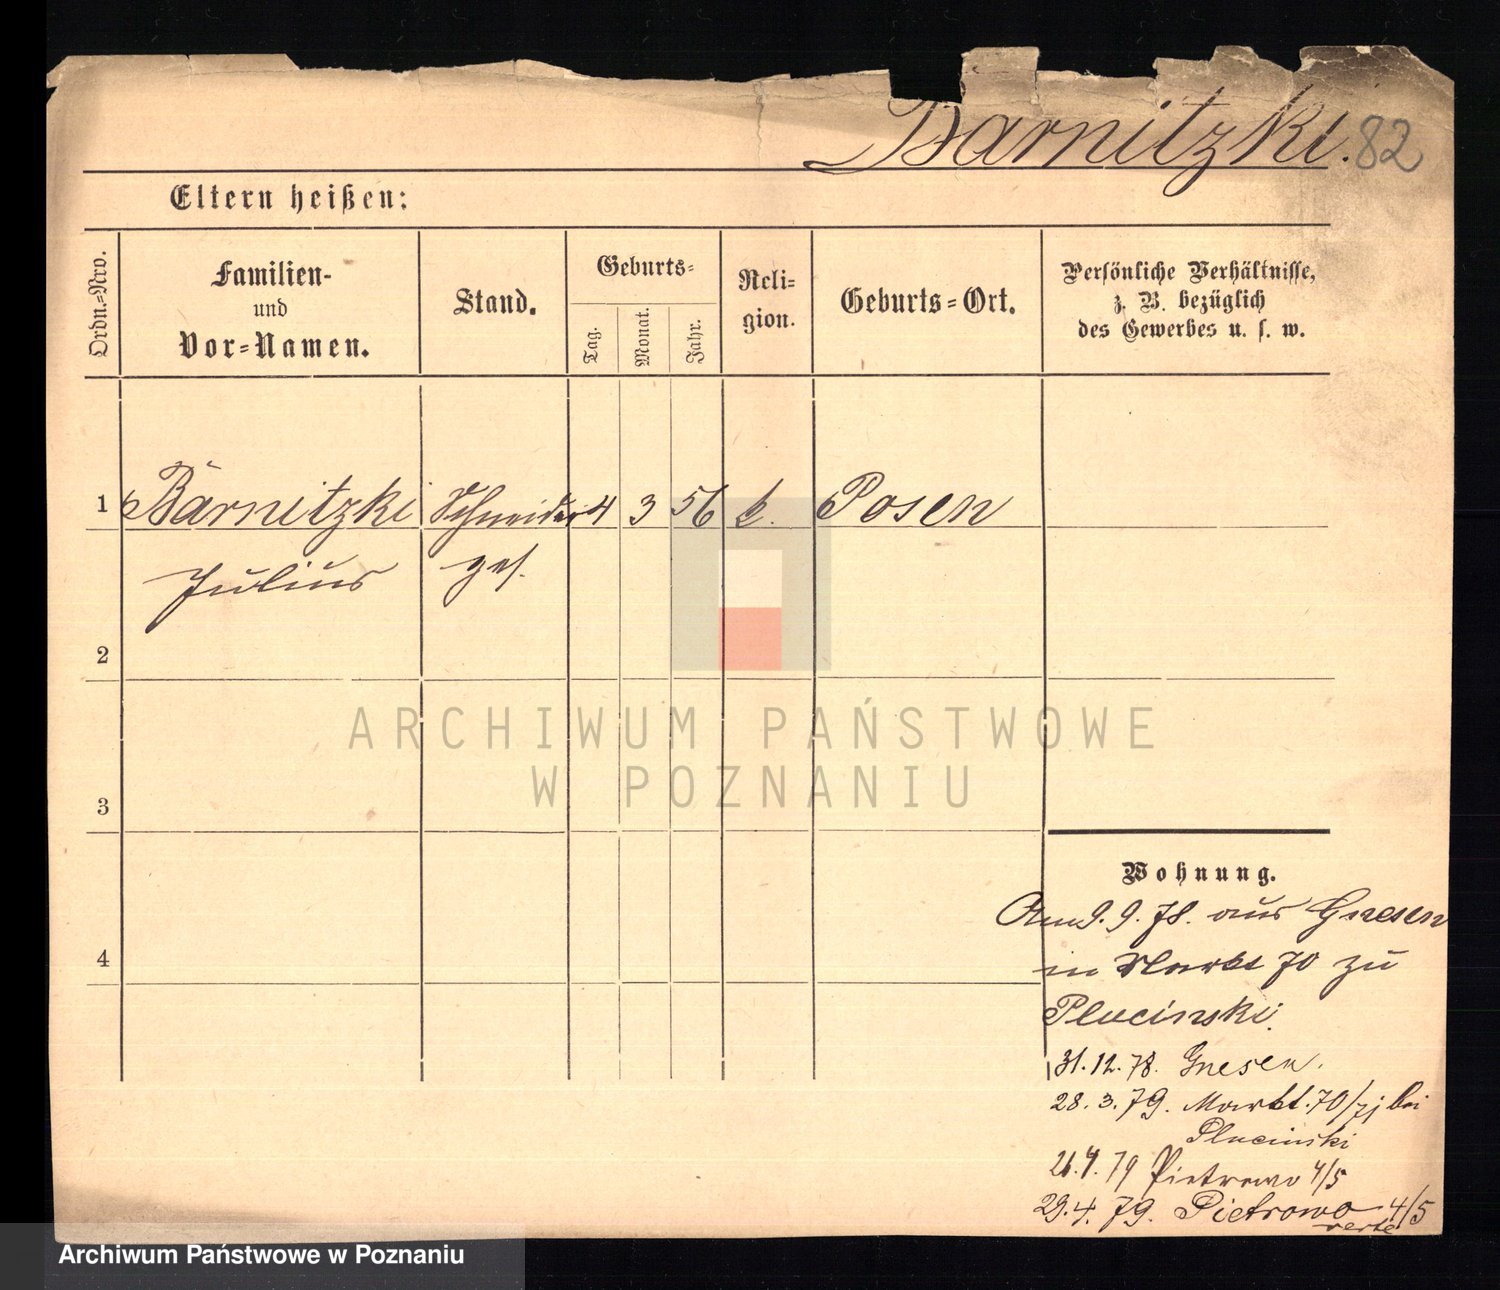 Bärnitzki. 82
Eltern heißen:
Ordn.-Nro.
Familien-
und
Vor-Namen.
Stand.
Geburts-
Tag.
Monat.
Jahr.
Reli-
gion.
Geburts-Ort.
Persönliche Verhältnisse,
z. B. bezüglich
des Gewerbes u. s. w.
1 Bärnitzki Schneider 4 3 56 k. Posen
Julius ges.
2
3
4
ARCHIWUM PAŃSTWOWE
W POZNANIU
Wohnung.
Am 9. 9. 78. aus Gnesen
in Markt 70 zu
Plucinski.
31. 12. 78. Gnesen.
28. 3. 79. Markt. 70/71 bei
Plucinski
26. 4. 79 Pietrowo 4/5
29. 4. 79. Pietrowo 4/5
verte
Archiwum Państwowe w Poznaniu